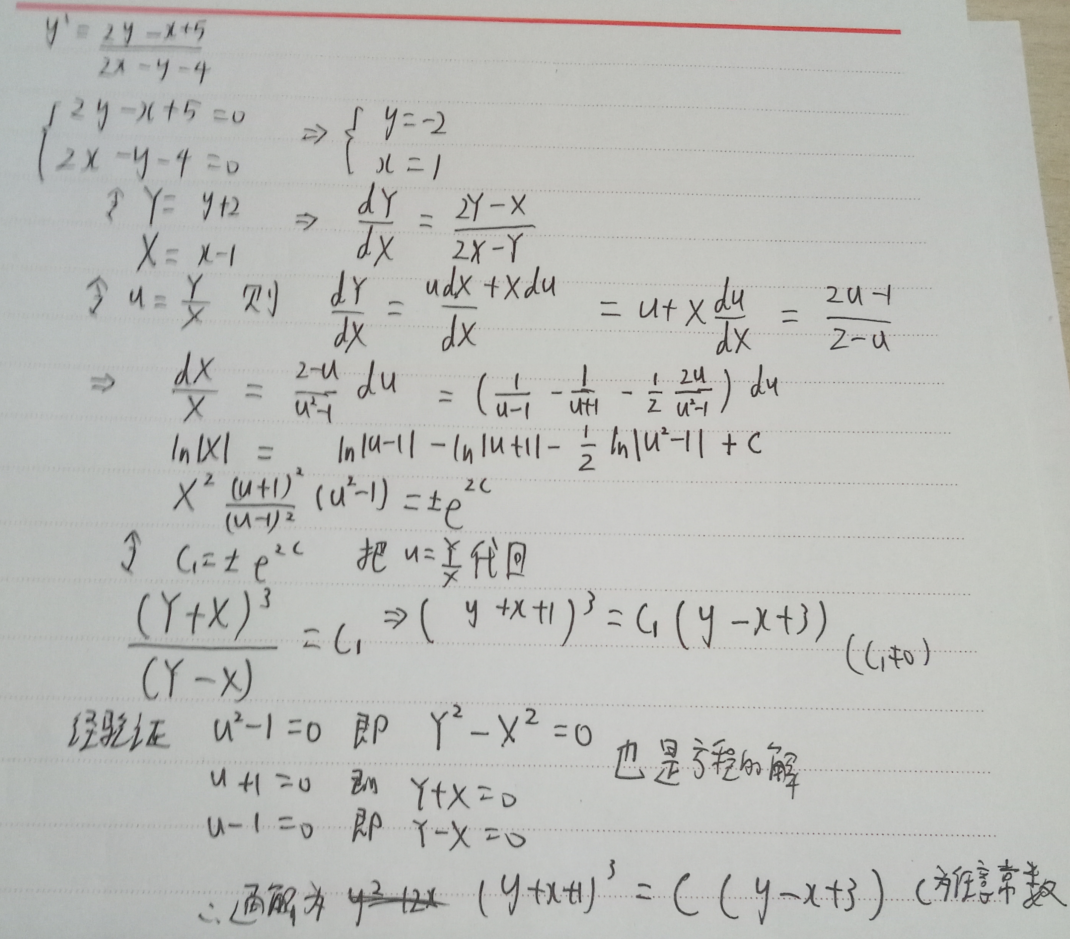 y' = \frac{2y-x+5}{2x-y-4}
\begin{cases} 2y-x+5=0 \\ 2x-y-4=0 \end{cases} ⇒ \begin{cases} y=-2 \\ x=1 \end{cases}
令 Y= y+2 X= x-1 ⇒ \frac{dY}{dX} = \frac{2Y-X}{2X-Y}
令 u= \frac{Y}{X} 则 \frac{dY}{dX} = \frac{udX+Xdu}{dX} = u+X\frac{du}{dX} = \frac{2u-1}{2-u}
⇒ \frac{dX}{X} = \frac{2-u}{u^2-1} du = (\frac{1}{u-1} - \frac{1}{u+1} - \frac{1}{2} \frac{2u}{u^2-1}) du
ln|X| = ln|u-1| - ln|u+1| - \frac{1}{2} ln|u^2-1| + C
X^2 \frac{(u+1)^2}{(u-1)^2} (u^2-1) = ±e^{2C}
令 C_1=± e^{2C} 把 u=\frac{Y}{X} 代回
\frac{(Y+X)^3}{(Y-X)} = C_1 ⇒ (y+x+1)^3 = C_1 (y-x+3) (C_1≠0)
经验证 u^2-1=0 即 Y^2-X^2=0 也是方程的解
u+1=0 即 Y+X=0
u-1=0 即 Y-X=0
∴通解为 (y+x+1)^3 = C (y-x+3) C为任意常数